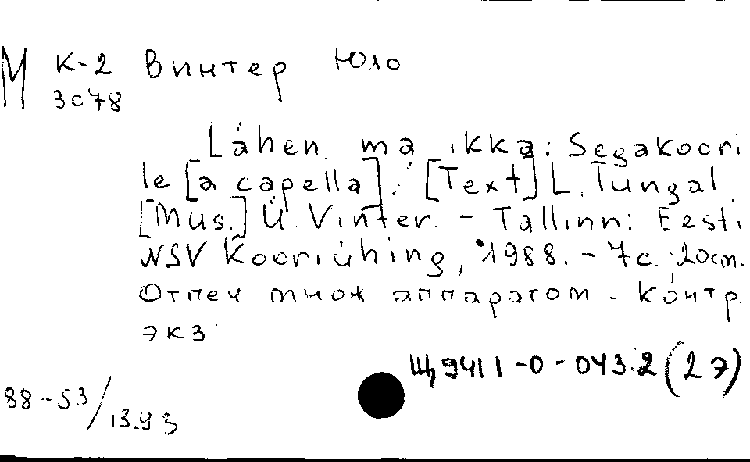 М К-2 Винтер Юло
3078
Lähen ma ikka: Segakoori
le [a capella]. [Text] L. Tungal.
[Mus.] Ü. Vinter. - Tallinn: Eesti
NSV Kooriühing, 1988. - 7с. 20cm.
Отпеч множ аппаратом. Контр.
экз.
Щ9411-0-043.2 (2Э)
88-53/
13.93